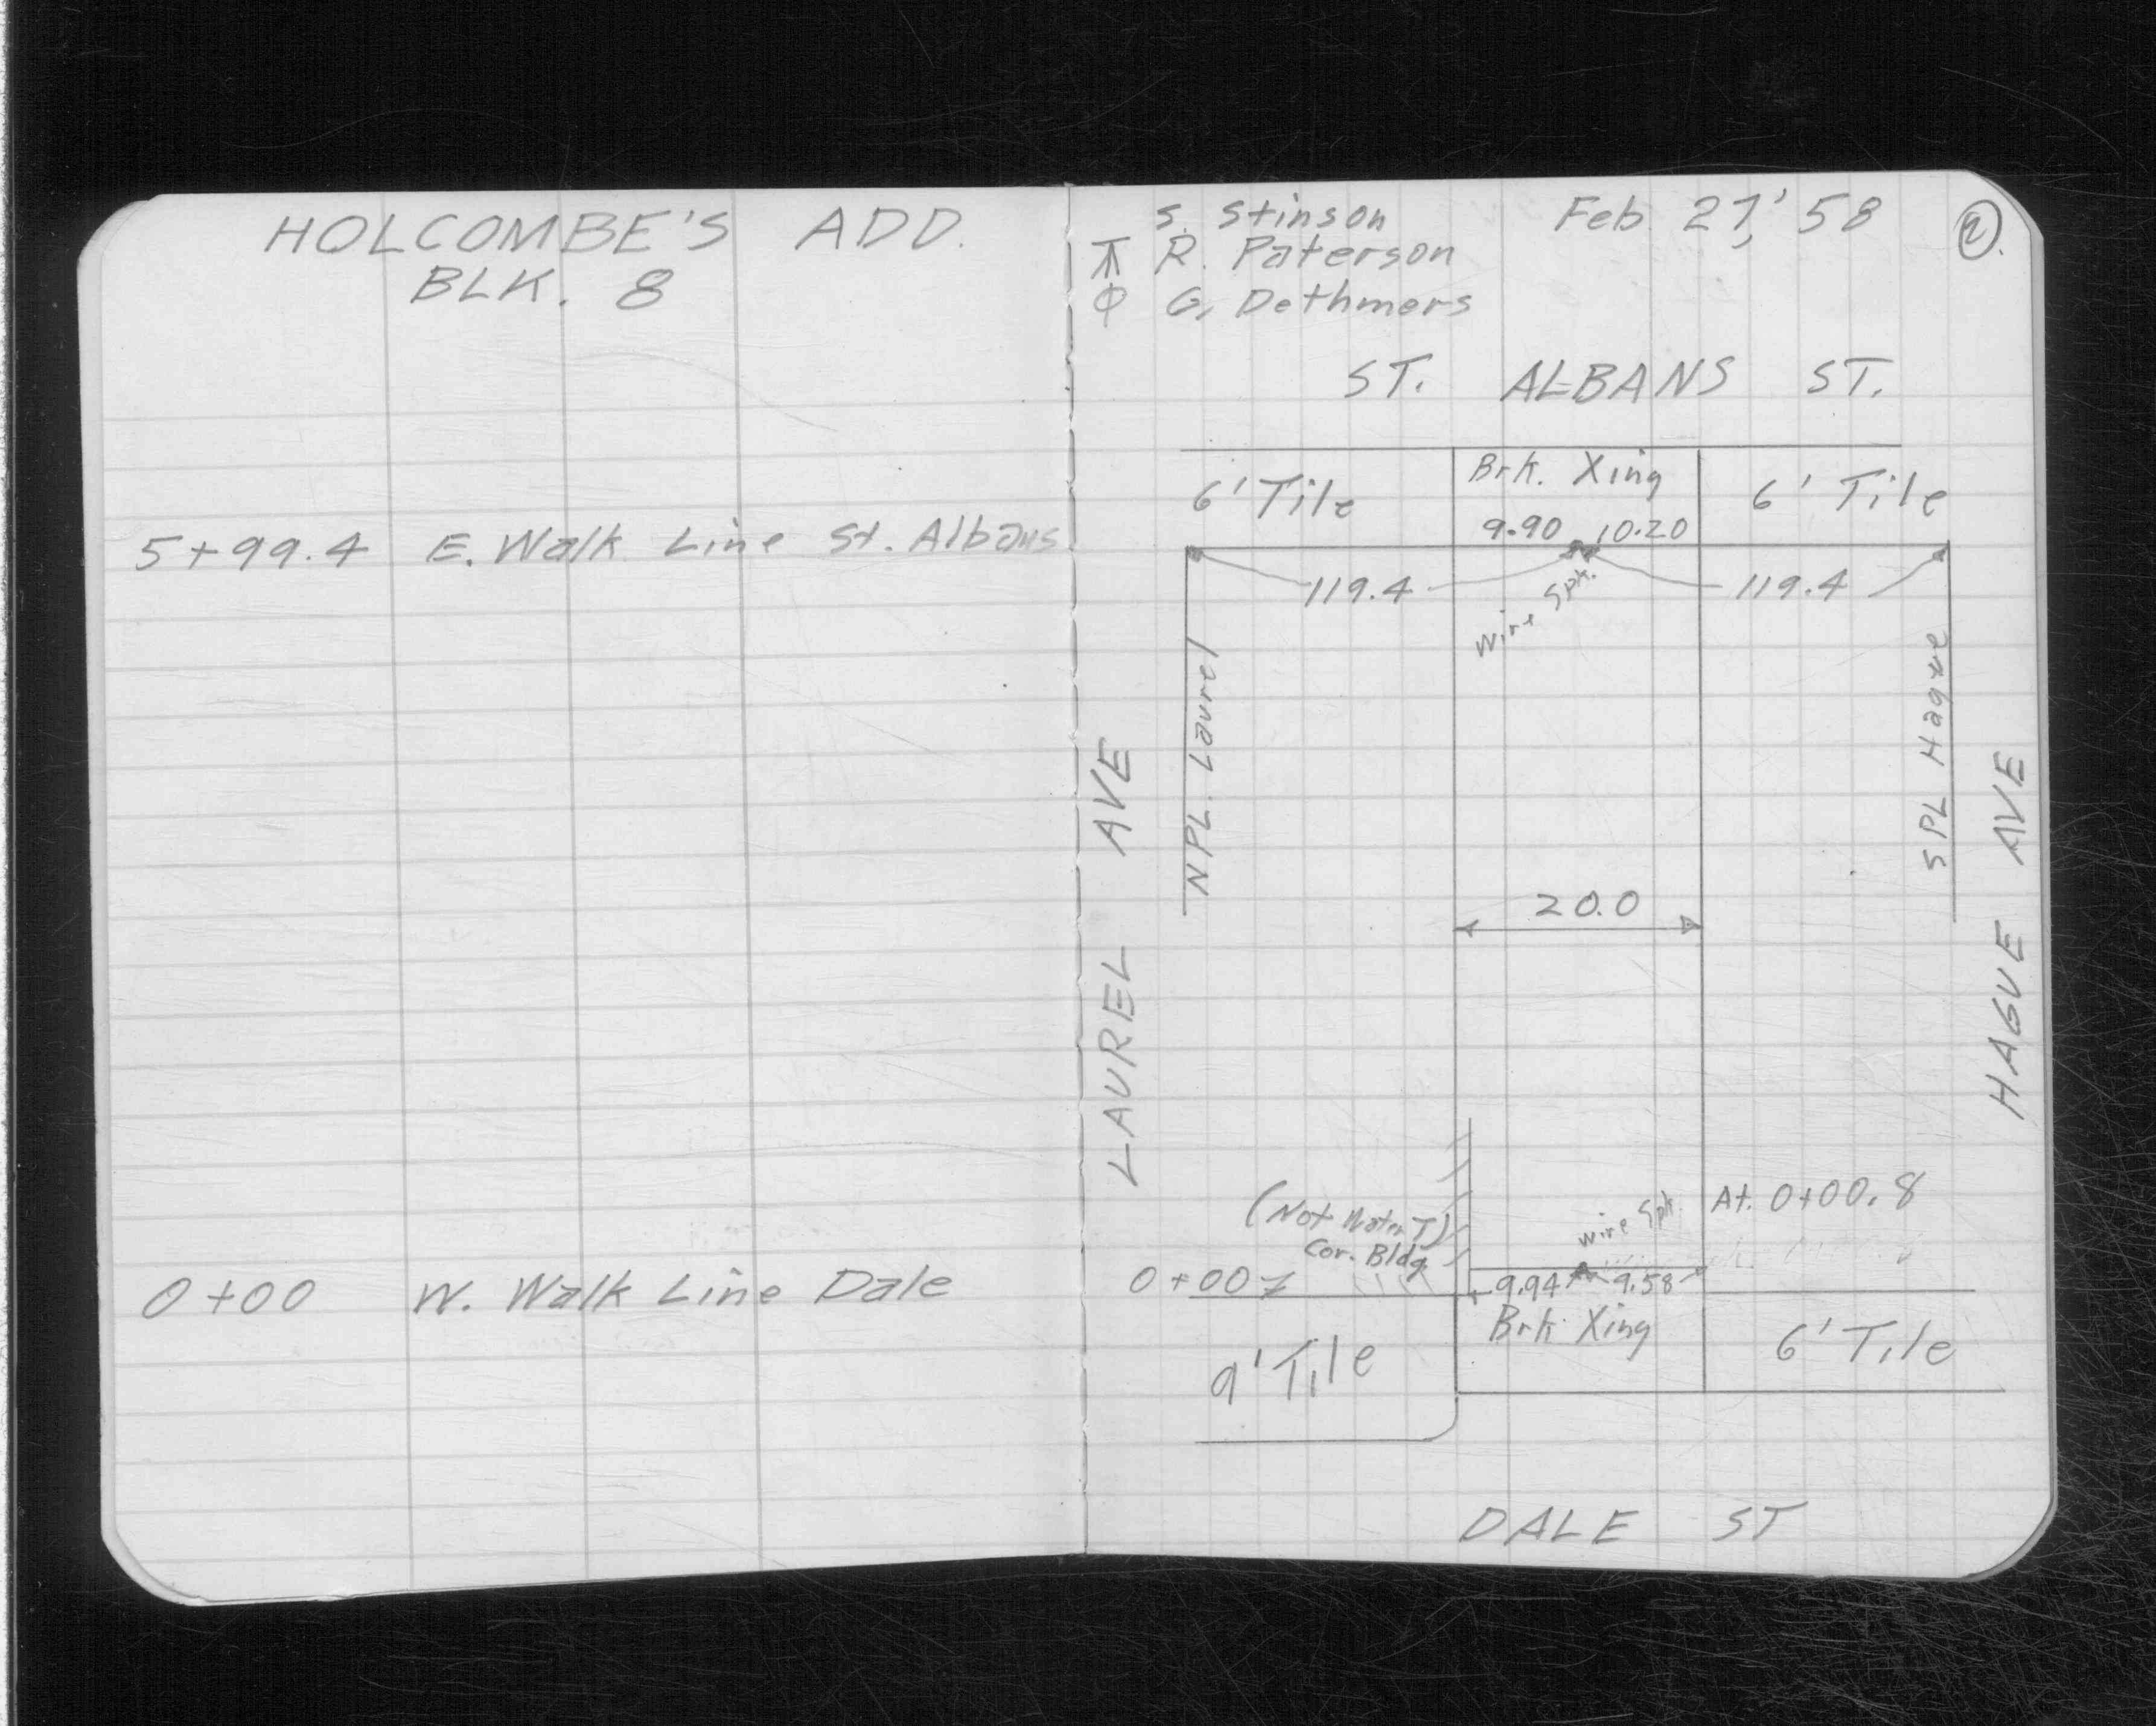 HOLCOMBE'S ADD.
BLK. 8
5+99.4 E. Walk Line St. Albans
0+00 W. Walk Line Dale
S. Stinson
R. Paterson
G. Dethmers
Feb 27, '58
2
ST. ALBANS ST.
6' Tile
Brk. Xing
6' Tile
9.90 10.20
119.4
Wire Spk.
119.4
NPL. Laurel
SPL Hague
LAUREL AVE
HAGUE AVE
20.0
At. 0+00.8
Wire Spk.
(Not Water T)
Cor. Bldg.
0+00
9.94 9.58
Brk Xing
9' Tile
6' Tile
DALE ST